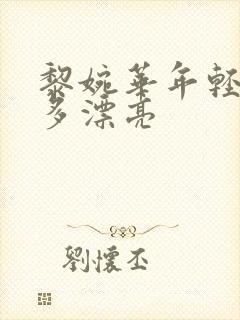 黎婉華年輕
多漂亮
劉懷丕